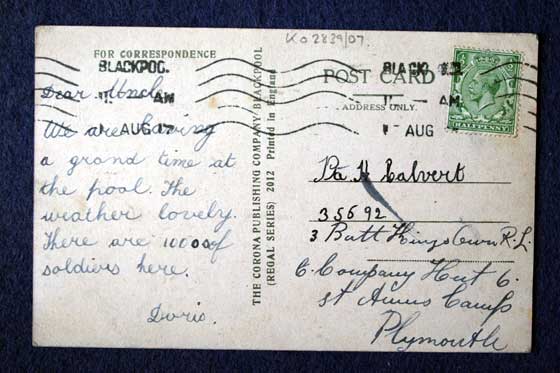 Ko 2839/07.
FOR CORRESPONDENCE
BLACKPOO
AM
AUG 17
Dear Uncle
We are having
a grand time at
the pool. The
weather lovely.
There are 1000s of
soldiers here.
Doris.
THE CORONA PUBLISHING COMPANY BLACKPOOL
(REGAL SERIES) 2012 Printed in England
POST CARD
ADDRESS ONLY.
BLACK
AM
AUG
HALFPENNY
Pte H Calvert
35692
3 Batt Kings Own R.L.
C. Company Hut 6.
St Annes Camp
Plymouth